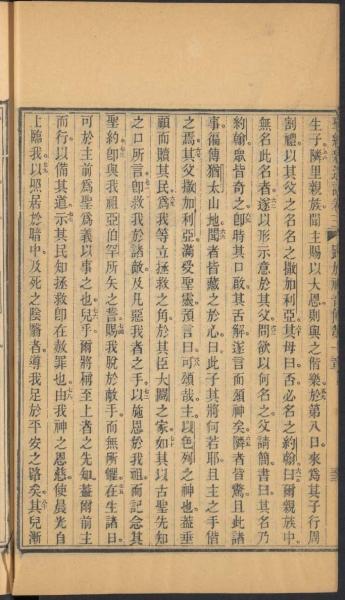 生子隣里親族聞主賜以大恩則與之偕樂於第八日來爲其子行周
割禮以其父之名名之撒加利亞其母曰否必名之約翰曰爾親族中
無名此名者遂以形示意於其父問欲以何名之父請簡書曰其名乃
約翰衆皆奇之卽時其口啟其舌解遂言而頌神矣隣者皆驚且此諸
事徧傳猶太山地聞者皆藏之於心曰此子其將何若耶且主之手偕
之焉其父撒加利亞滿受聖靈預言曰可頌哉主以色列之神也蓋垂
顧而贖其民爲我等立拯救之角於其臣大闢之家如其以古聖先知
之口所言卽救我於諸敵及凡惡我者之手以施恩於我祖而記念其
聖約卽與我祖亞伯罕所矢之誓賜我脫於敵手而無所懼在生諸日
可於主前爲聖爲義以事之也兒乎爾將稱至上者之先知蓋爾前主
而行以備其道示其民知拯救卽在赦罪也由我神之恩慈使晨光自
上臨我以照居於暗中及死之陰翳者導我足於平安之路矣其兒漸